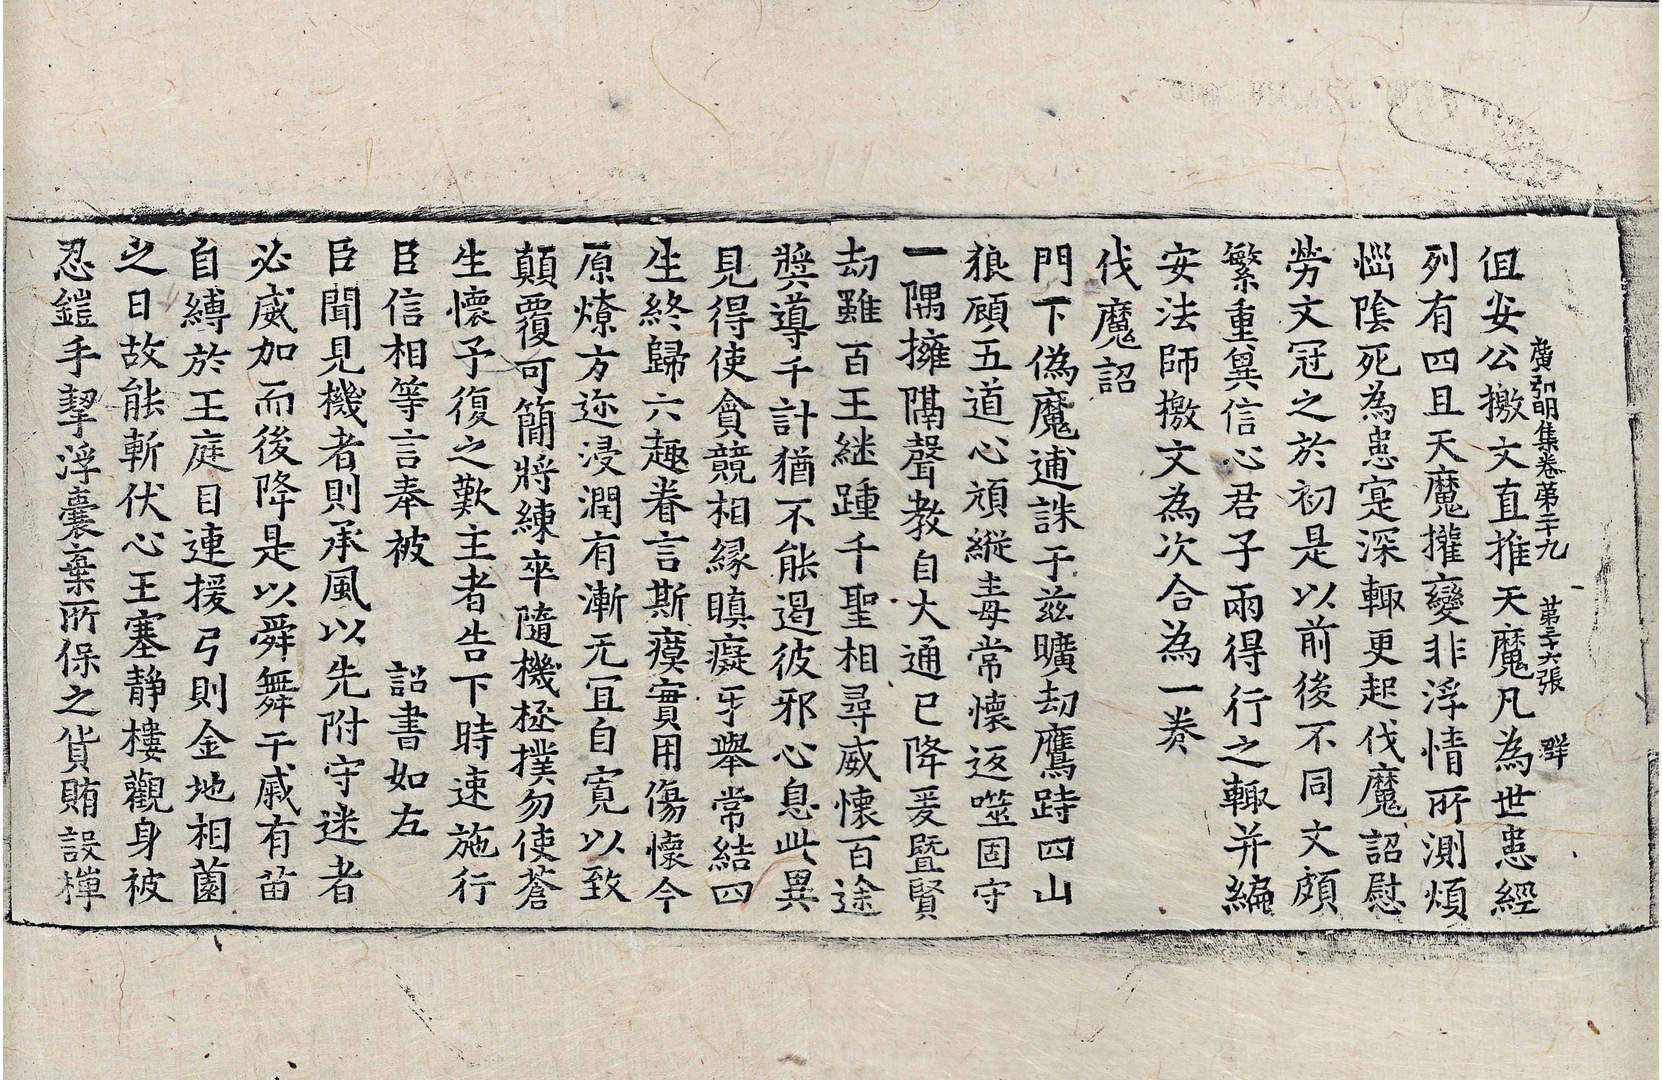 廣弘明集卷第二十九　第三十六張　群
但安公檄文直推天魔凡為世患經
列有四且天魔權變非浮情所測煩
惱陰死為患寔深輙更起伐魔詔慰
勞文冠之於初是以前後不同文頗
繁重兾信心君子兩得行之輙并編
安法師檄文為次合為一卷
伐魔詔
門下偽魔逋誅于茲曠劫鷹跱四山
狼顧五道心頑縱毒常懷返噬固守
一隅擁隔聲教自大通已降爰暨賢
劫雖百王継踵千聖相尋威懷百途
奬導千計猶不能遏彼邪心息此異
見得使貪競相緣瞋癡牙舉常結四
生終歸六趣眷言斯瘼實用傷懷今
原燎方迩浸潤有漸无冝自寬以致
顛覆可簡將練卒隨機拯撲勿使蒼
生懷予復之歎主者告下時速施行
臣信相等言奉被　詔書如左
臣聞見機者則承風以先附守迷者
必威加而後降是以舜舞干戚有苗
自縛於王庭目連援弓則金地相薗
之日故能斬伏心王塞静樓觀身被
忍鎧手挈浮囊棄所保之貨賄設樿